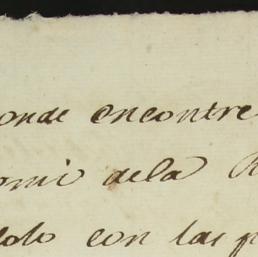 onde encontre
omi dela R
dolo con las p